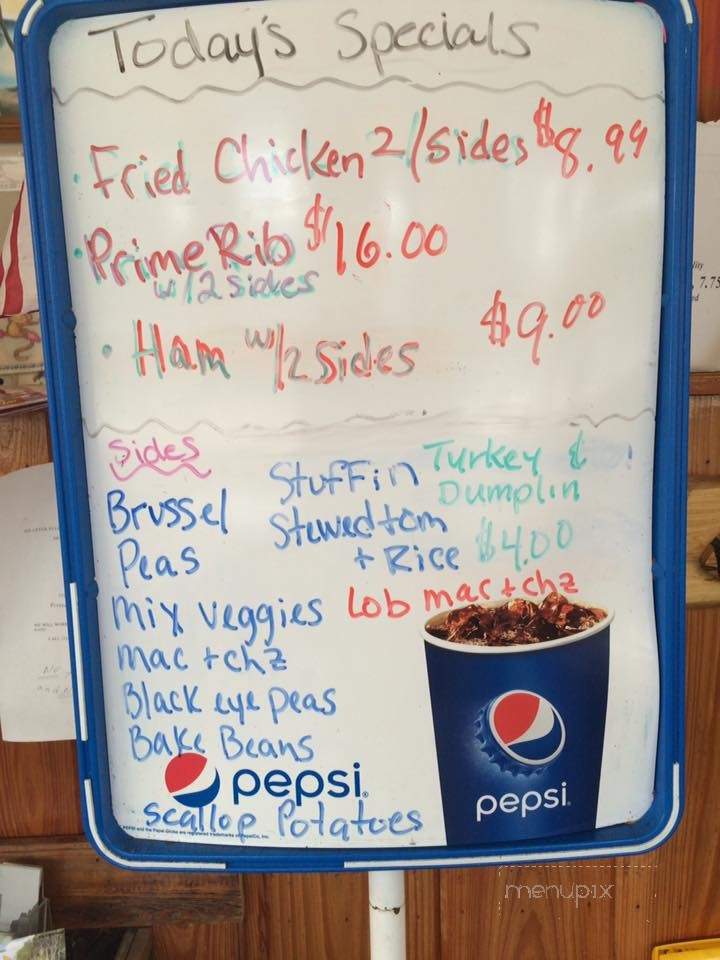 Today's Specials
· Fried Chicken 2/Sides $8.99
· Prime Rib $16.00
w/2 sides
· Ham w/2 Sides $9.00
Sides
Brussel
Peas
mix veggies
mac + chz
Black eye peas
Bake Beans
Scallop Potatoes
Stuffin
Stewed tom
+ Rice
Turkey &
Dumplin
$4.00
Lob mac + chz
pepsi
pepsi
menupix
7.75